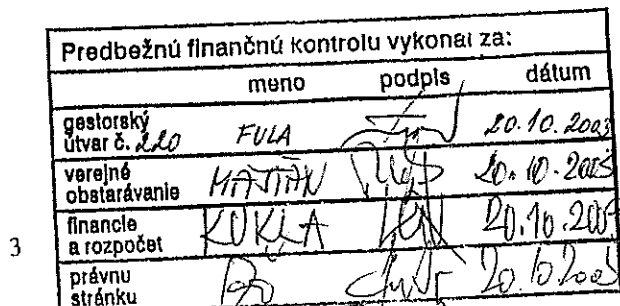 Predbežnú finančnú kontrolu vykonal za:
meno podpis dátum
gestorský
útvar č. 220 FULA 20.10.2003
verejné
obstarávanie 20.10.200
financie
a rozpočet KUKLA 20.10.200
3
právnu
stránku 20.10.200